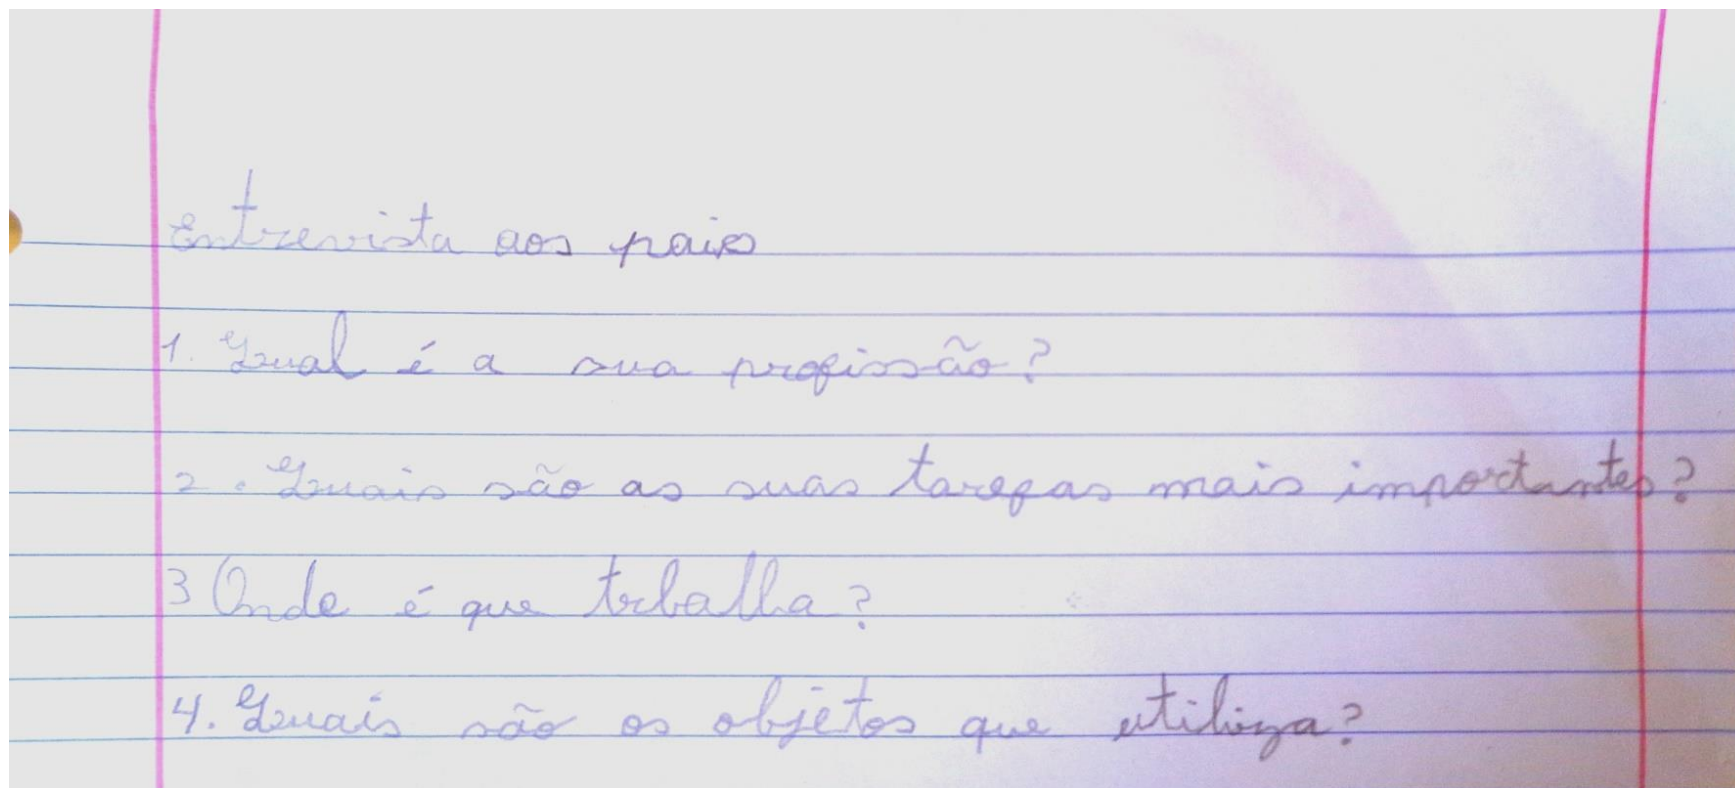 Entrevista aos pais
1. Qual é a sua profissão?
2. Quais são as suas tarefas mais importantes?
3 Onde é que trbalha?
4. Quais são os objetos que utiliza?